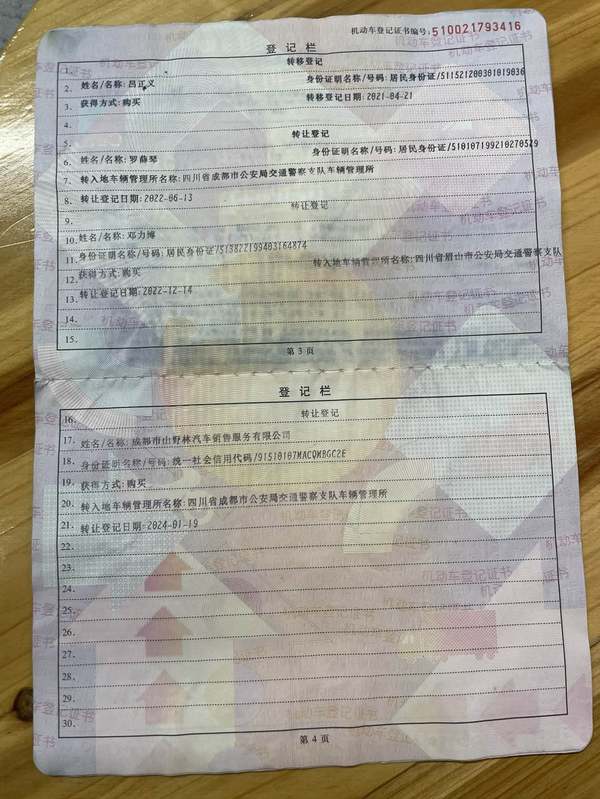 机动车登记证书编号:510021793416
登记栏
1. 转移登记
2. 姓名/名称:吕正义 身份证明名称/号码:居民身份证/511521200301019036
3. 获得方式:购买 转移登记日期:2021-04-21
4.
5. 转让登记
6. 姓名/名称:罗薛琴 身份证明名称/号码:居民身份证/510107199210270529
7. 转入地车辆管理所名称:四川省成都市公安局交通警察支队车辆管理所
8. 转让登记日期:2022-06-13
9. 转让登记
10. 姓名/名称:邓力维
11. 身份证明名称/号码:居民身份证/513822199403164874
12. 获得方式:购买 转入地车辆管理所名称:四川省眉山市公安局交通警察支队
13. 转让登记日期:2022-12-14
14.
15.
第3页
登记栏
16. 转让登记
17. 姓名/名称:成都市山野林汽车销售服务有限公司
18. 身份证明名称/号码:统一社会信用代码/91510107MACQMBGC2E
19. 获得方式:购买
20. 转入地车辆管理所名称:四川省成都市公安局交通警察支队车辆管理所
21. 转让登记日期:2024-01-19
22.
23.
24.
25.
26.
27.
28.
29.
30.
第4页